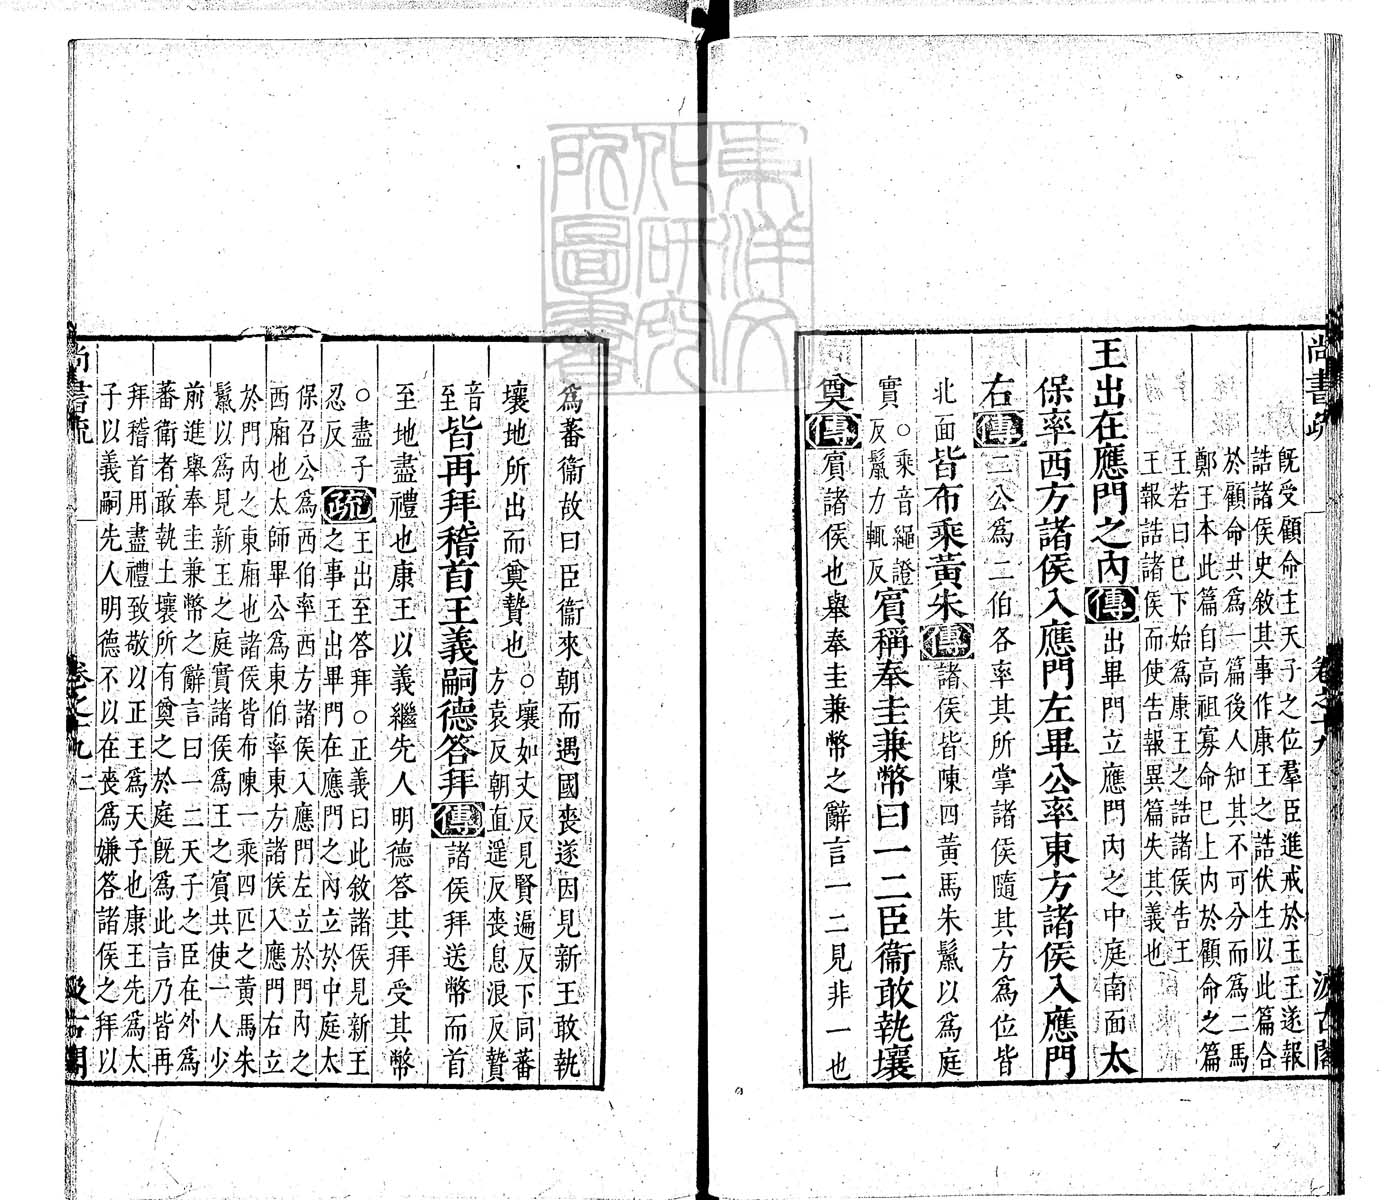 尚書疏
卷之十九
汲古閣
既受顧命主天子之位羣臣進戒於王王遂報
誥諸侯史敘其事作康王之誥伏生以此篇合
於顧命共爲一篇後人知其不可分而爲二馬
鄭王本此篇自高祖寡命已上内於顧命之篇
王若曰已下始爲康王之誥諸侯告王
王報誥諸侯而使告報異篇失其義也
王出在應門之内傳出畢門立應門内之中庭南面太
保率西方諸侯入應門左畢公率東方諸侯入應門
右傳二公爲二伯各率其所掌諸侯隨其方爲位皆
北面皆布乘黄朱傳諸侯皆陳四黄馬朱鬛以爲庭
實○乘音繩證
反鬛力輒反
賓稱奉圭兼幣曰一二臣衞敢執壤
奠傳賓諸侯也舉奉圭兼幣之辭言一二見非一也
爲蕃衞故曰臣衞來朝而遇國喪遂因見新王敢執
壤地所出而奠贄也○壤如丈反見賢遍反下同蕃
方袁反朝直遥反喪息浪反贄
音
至
皆再拜稽首王義嗣德答拜傳諸侯拜送幣而首
至地盡禮也康王以義繼先人明德答其拜受其幣
○盡子
忍反
疏王出至答拜○正義曰此敘諸侯見新王
之事王出畢門在應門之内立於中庭太
保召公爲西伯率西方諸侯入應門左立於門内之
西廂也太師畢公爲東伯率東方諸侯入應門右立
於門内之東廂也諸侯皆布陳一乘四匹之黄馬朱
鬛以爲見新王之庭實諸侯爲王之賓共使一人少
前進舉奉圭兼幣之辭言曰一二天子之臣在外爲
蕃衞者敢執土壤所有奠之於庭既爲此言乃皆再
拜稽首用盡禮致敬以正王爲天子也康王先爲太
子以義嗣先人明德不以在喪爲嫌答諸侯之拜以
尚書疏
卷之十九
二
汲古閣
東洋文
化研究
所圖書